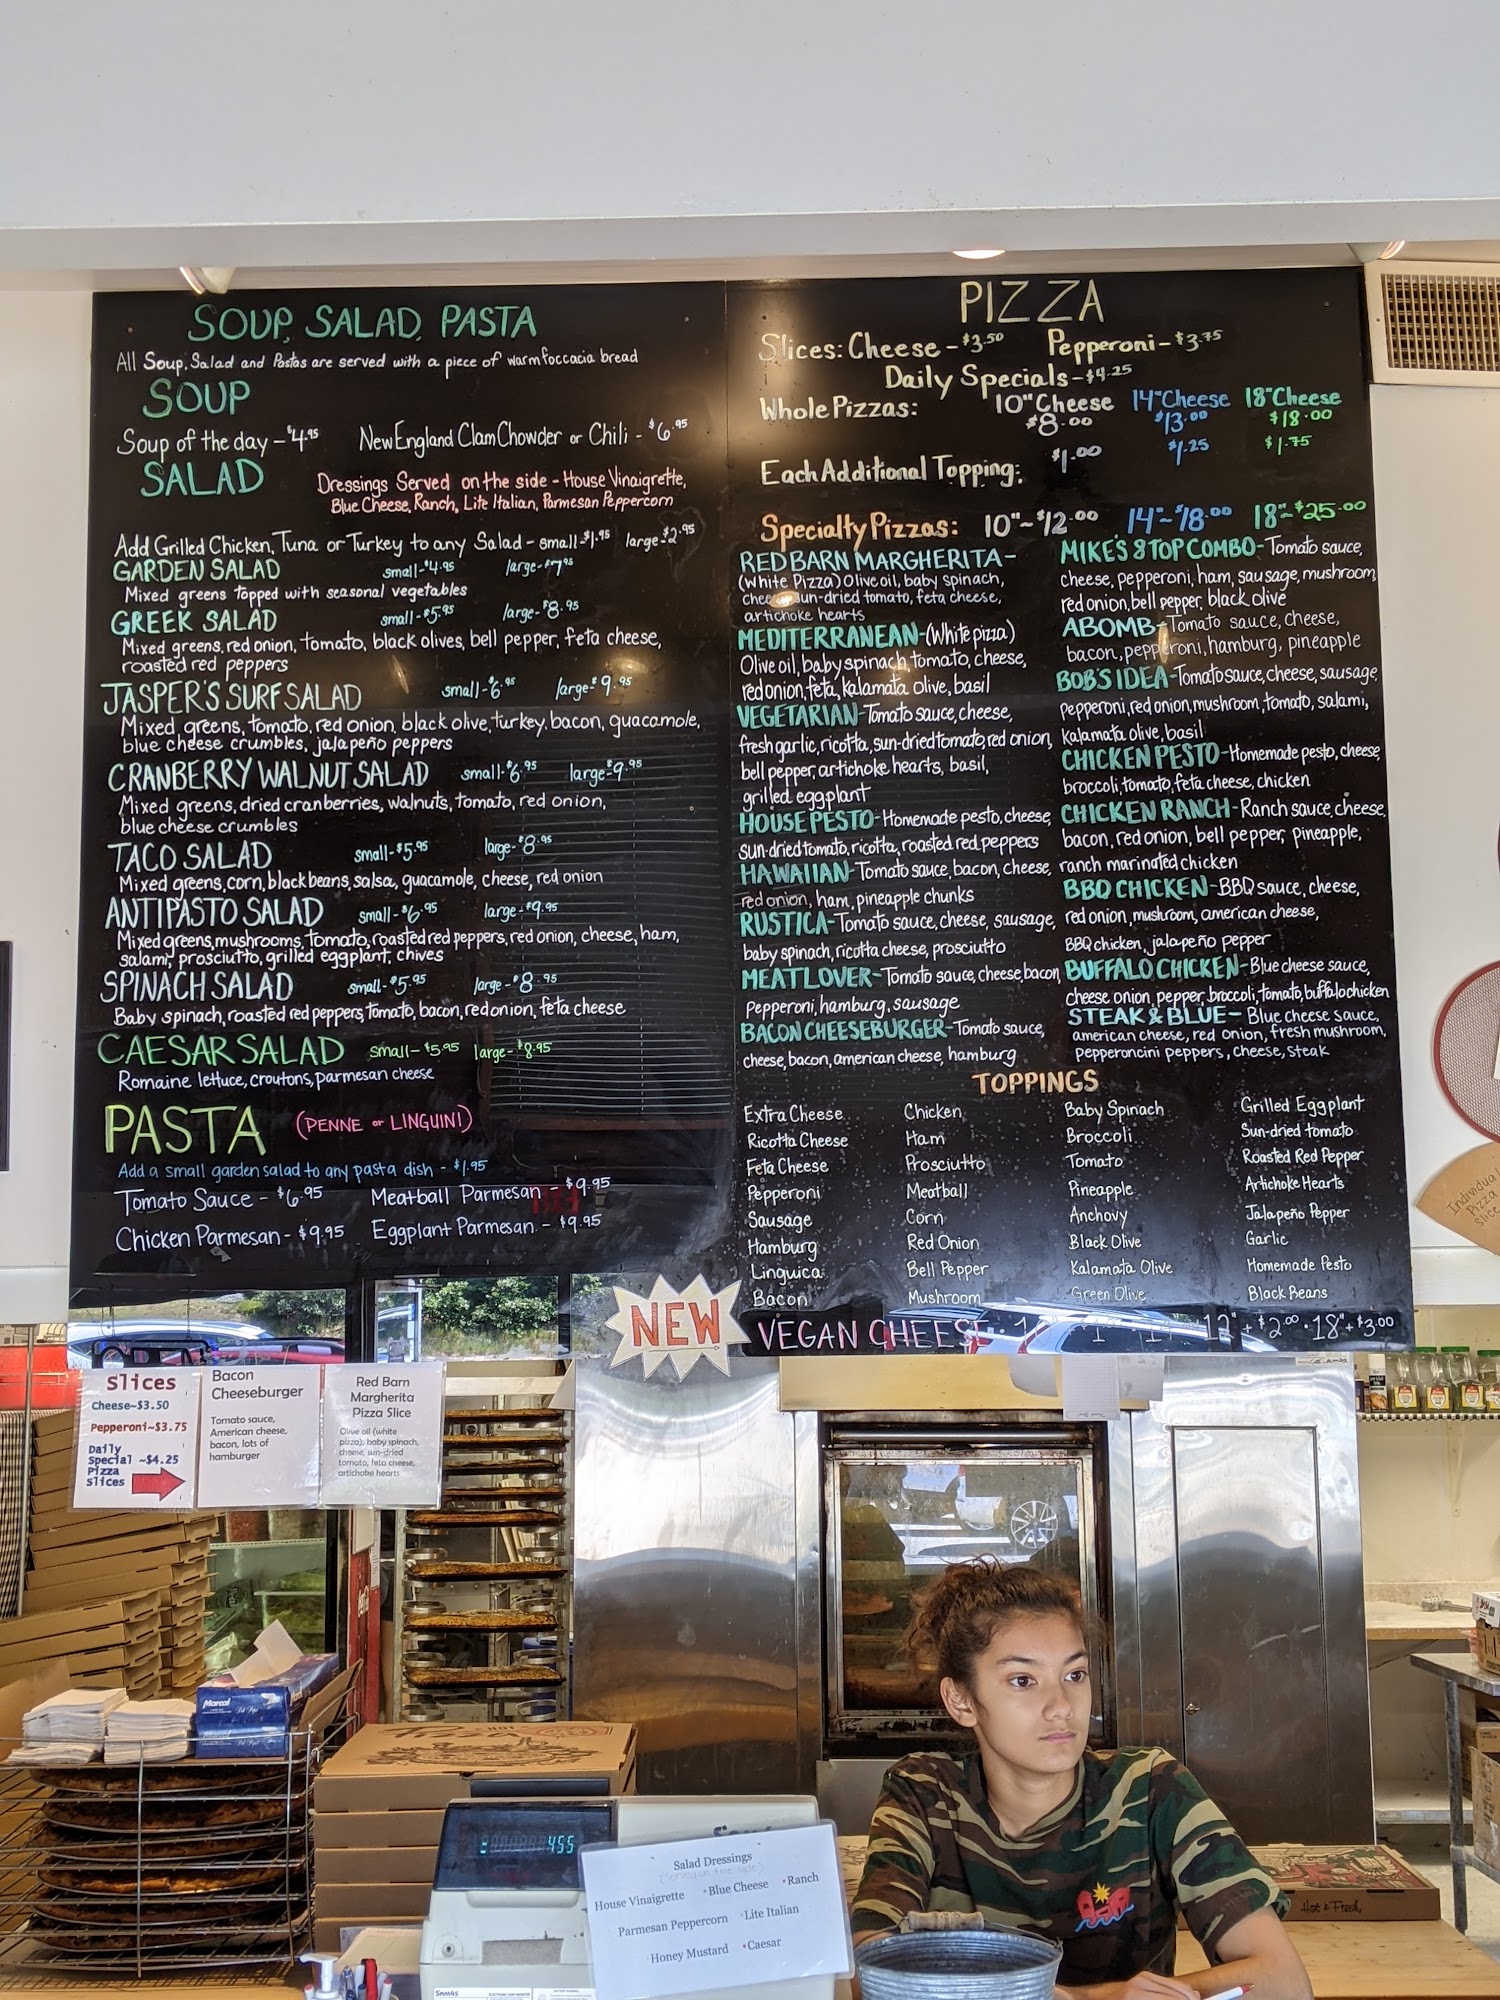 SOUP, SALAD, PASTA
All Soup, Salad and Pastas are served with a piece of warm foccacia bread
SOUP
Soup of the day - $4.95 New England Clam Chowder or Chili - $6.95
SALAD
Dressings Served on the side - House Vinaigrette,
Blue Cheese, Ranch, Lite Italian, Parmesan Peppercorn
Add Grilled Chicken, Tuna or Turkey to any Salad - small-$1.95 large-$2.95
GARDEN SALAD small-$4.95 large-$7.95
Mixed greens topped with seasonal vegetables
GREEK SALAD small-$5.95 large-$8.95
Mixed greens, red onion, tomato, black olives, bell pepper, feta cheese,
roasted red peppers
JASPER'S SURF SALAD small-$6.95 large-$9.95
Mixed greens, tomato, red onion, black olive, turkey, bacon, guacamole,
blue cheese crumbles, jalapeño peppers
CRANBERRY WALNUT SALAD small-$6.95 large-$9.95
Mixed greens, dried cranberries, walnuts, tomato, red onion,
blue cheese crumbles
TACO SALAD small-$5.95 large-$8.95
Mixed greens, corn, black beans, salsa, guacamole, cheese, red onion
ANTIPASTO SALAD small-$6.95 large-$9.95
Mixed greens, mushrooms, tomato, roasted red peppers, red onion, cheese, ham,
salami, prosciutto, grilled eggplant, chives
SPINACH SALAD small-$5.95 large-$8.95
Baby spinach, roasted red peppers, tomato, bacon, red onion, feta cheese
CAESAR SALAD small-$5.95 large-$8.95
Romaine lettuce, croutons, parmesan cheese
PASTA (PENNE or LINGUINI)
Add a small garden salad to any pasta dish - $1.95
Tomato Sauce - $6.95 Meatball Parmesan - $9.95
Chicken Parmesan - $9.95 Eggplant Parmesan - $9.95
PIZZA
Slices: Cheese - $3.50 Pepperoni - $3.75
Daily Specials - $4.25
Whole Pizzas: 10" Cheese 14" Cheese 18" Cheese
$8.00 $13.00 $18.00
Each Additional Topping: $1.00 $1.25 $1.75
Specialty Pizzas: 10"~$12.00 14"~$18.00 18"~$25.00
RED BARN MARGHERITA -
(White Pizza) Olive oil, baby spinach,
cheese, sun-dried tomato, feta cheese,
artichoke hearts
MEDITERRANEAN - (White pizza)
Olive oil, baby spinach, tomato, cheese,
red onion, feta, kalamata olive, basil
VEGETARIAN - Tomato sauce, cheese,
fresh garlic, ricotta, sun-dried tomato, red onion,
bell pepper, artichoke hearts, basil,
grilled eggplant
HOUSE PESTO - Homemade pesto, cheese,
sun-dried tomato, ricotta, roasted red peppers
HAWAIIAN - Tomato sauce, bacon, cheese,
red onion, ham, pineapple chunks
RUSTICA - Tomato sauce, cheese, sausage,
baby spinach, ricotta cheese, prosciutto
MEATLOVER - Tomato sauce, cheese, bacon,
Pepperoni, hamburg, sausage
BACON CHEESEBURGER - Tomato sauce,
cheese, bacon, american cheese, hamburg
MIKE'S 8 TOP COMBO - Tomato sauce,
cheese, pepperoni, ham, sausage, mushroom,
red onion, bell pepper, black olive
ABOMB - Tomato sauce, cheese,
bacon, pepperoni, hamburg, pineapple
BOB'S IDEA - Tomato sauce, cheese, sausage,
pepperoni, red onion, mushroom, tomato, salami,
kalamata olive, basil
CHICKEN PESTO - Homemade pesto, cheese,
broccoli, tomato, feta cheese, chicken
CHICKEN RANCH - Ranch sauce, cheese,
bacon, red onion, bell pepper, pineapple,
ranch marinated chicken
BBQ CHICKEN - BBQ sauce, cheese,
red onion, mushroom, american cheese,
BBQ chicken, jalapeño pepper
BUFFALO CHICKEN - Blue cheese sauce,
cheese onion, pepper, broccoli, tomato, buffalo chicken
STEAK & BLUE - Blue cheese sauce,
american cheese, red onion, fresh mushroom,
Pepperoncini peppers, cheese, steak
TOPPINGS
Extra Cheese Chicken Baby Spinach Grilled Eggplant
Ricotta Cheese Ham Broccoli Sun-dried tomato
Feta Cheese Prosciutto Tomato Roasted Red Pepper
Pepperoni Meatball Pineapple Artichoke Hearts
Sausage Corn Anchovy Jalapeño Pepper
Hamburg Red Onion Black Olive Garlic
Linguica Bell Pepper Kalamata Olive Homemade Pesto
Bacon Mushroom Green Olive Black Beans
NEW VEGAN CHEESE + $2.00 • 18"+ $3.00
Individual
Pizza
slice
Slices
Cheese~$3.50
Pepperoni~$3.75
Daily
Special ~$4.25
Pizza
Slices
Bacon
Cheeseburger
Tomato sauce,
American cheese,
bacon, lots of
hamburger
Red Barn
Margherita
Pizza Slice
Olive oil (white
pizza), baby spinach,
cheese, sun-dried
tomato, feta cheese,
artichoke hearts
Marcal
455
Salad Dressings
(Served on the side)
House Vinaigrette •Blue Cheese •Ranch
Parmesan Peppercorn •Lite Italian
Honey Mustard •Caesar
Hot & Fresh